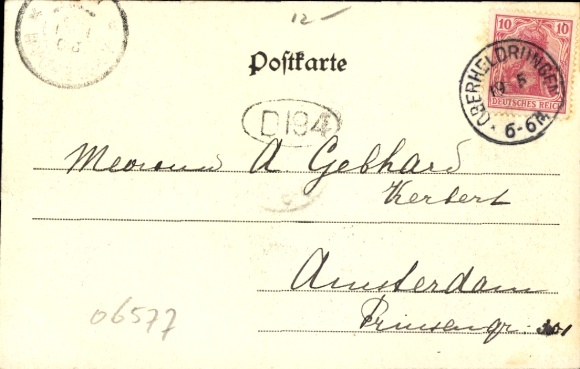 12 –
10 10
DEUTSCHES REICH
OBERHELDRUNGEN
19 5
6-6N
Postkarte
D194
A Gebhard
Kerbert
Amsterdam
Prinsengr. 301
06577